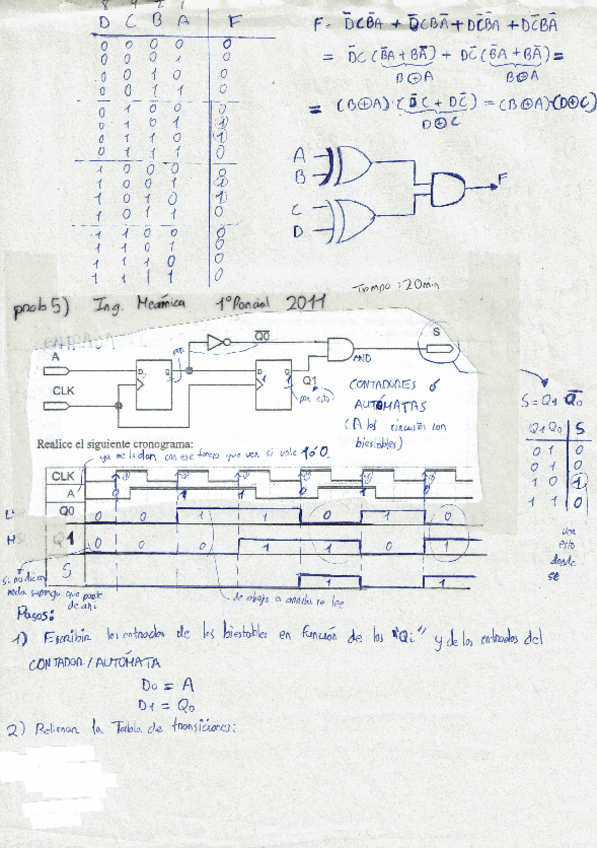 8 4 2 1
D C B A F
0 0 0 0 0
0 0 0 1 0
0 0 1 0 0
0 0 1 1 0
0 1 0 0 0
0 1 0 1 1
0 1 1 0 1
0 1 1 1 0
1 0 0 0 0
1 0 0 1 1
1 0 1 0 1
1 0 1 1 0
1 1 0 0 0
1 1 0 1 0
1 1 1 0 0
1 1 1 1 0
F = D̄CB̄A + D̄CBĀ + DC̄B̄A + DC̄BĀ
= D̄C (B̄A + BĀ) + DC̄ (B̄A + BĀ) =
B⊕A B⊕A
= (B⊕A) · (D̄C + DC̄) = (B⊕A)·(D⊕C)
D⊕C
A
B
C
D
F
Tiempo: 20min
prob 5) Ing. Mecánica 1º Parcial 2011
A
CLK
D0
Q0
Q1
AND
S
CONTADORES ó
AUTÓMATAS
(A los circuitos con
biestables)
S = Q1 Q̄0
Q1 Q0 S
0 1 0
0 1 0
1 0 1
1 1 0
Realice el siguiente cronograma:
ya me lo dan, con ese tengo que ver si vale 1 ó 0.
CLK
A 0 1 1 0 1 0
Q0 0 0 1 1 0 1 0
Q1 0 0 0 1 1 0 1
S 1 1
de abajo a arriba se lee
Pasos:
1) Escribir las entradas de los biestables en función de los "Qi" y de las entradas del
CONTADOR / AUTÓMATA
D0 = A
D1 = Q0
2) Rellenar la Tabla de transiciones: